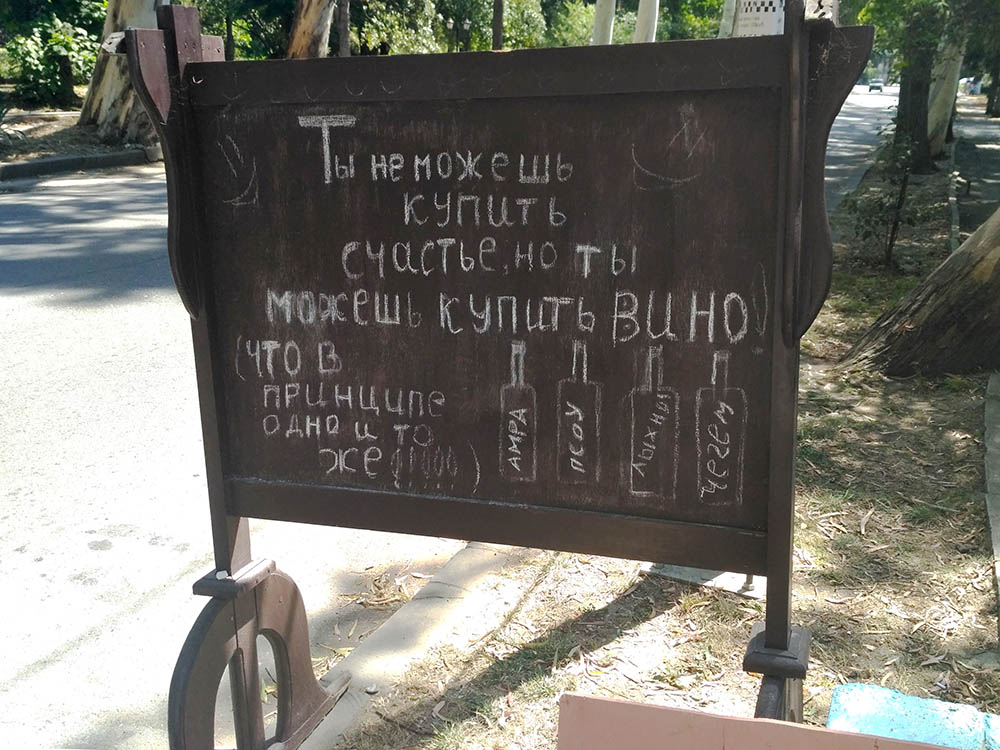 Ты не можешь
купить
счастье, но ты
можешь купить ВИНО!
(что в
принципе
одно и то
же
АМРА
ПСОУ
ЛЫХНЫ
Чегем